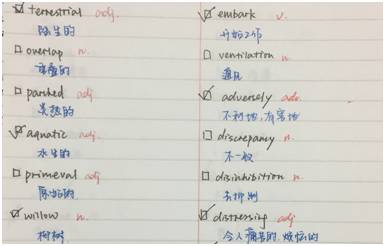 terrestrial adj.
陆生的
overlap n.
重叠的
parshed adj.
炎热的
aquatic adj.
水生的
primeval adj.
原始的
willow n.
柳树
embark v.
开始工作
ventilation n.
通风
adversely adv.
不利地,有害地
discrepancy n.
不一致
disinhibition n.
去抑制
distressing adj
令人痛苦的 烦恼的